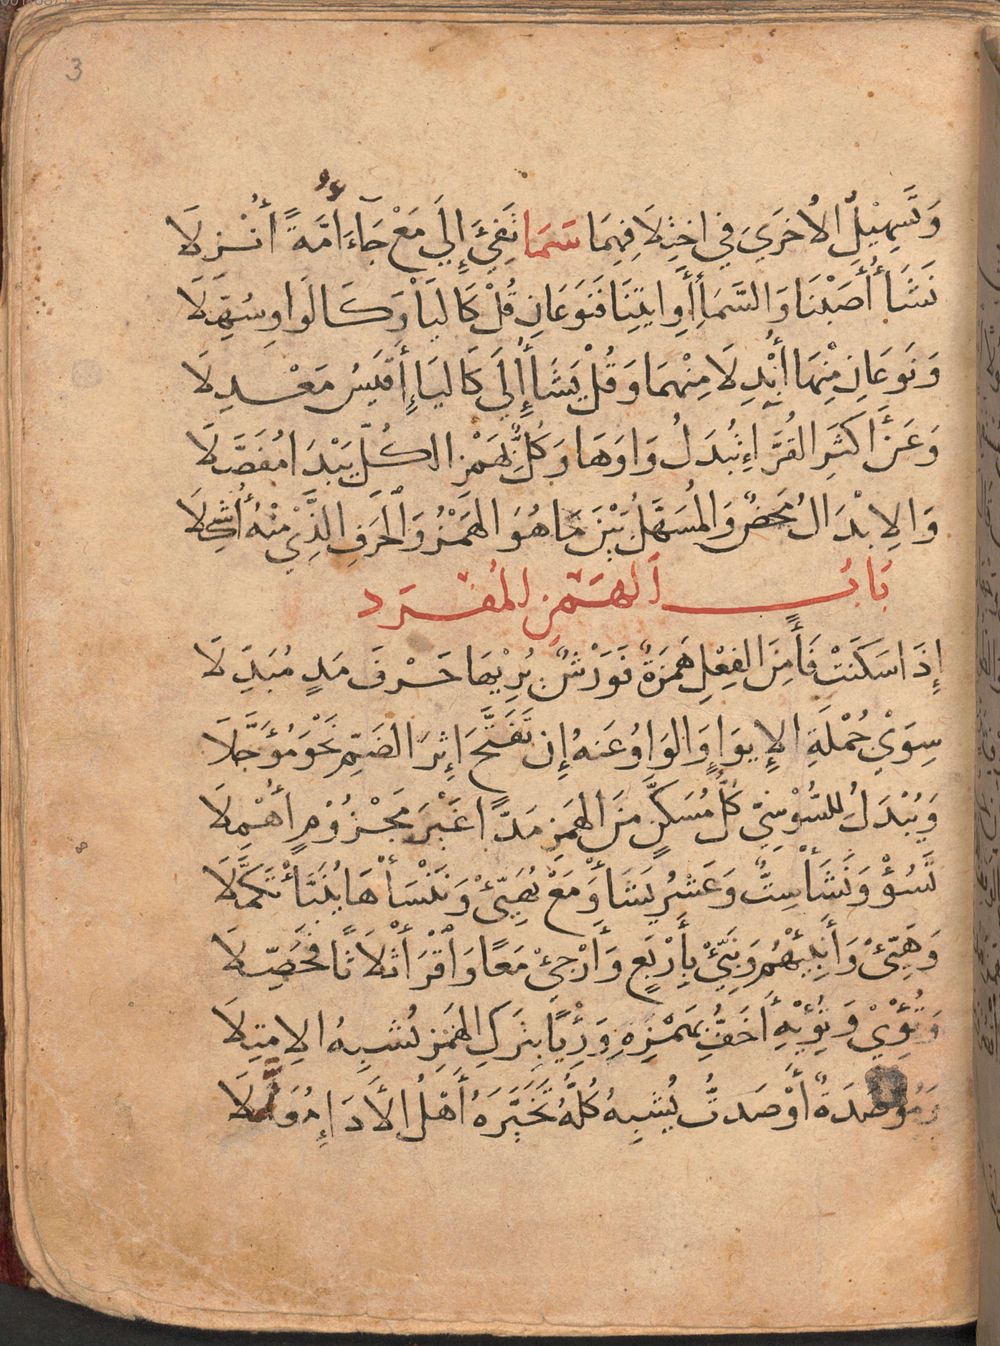 3
وَتَسْهِيْلُ الاُخرَيَ فِي اخْتِلَافِهِمَا سَمَا تَفِيْءَ إِلَي مَعْ جَآءَ أُمَّةً أُنْزِلَا
نَشَأُ أَصَبْنَا وَالسَّمَاءِ أَوِايتِنَا فَنَوعَانِ قُلْ كَاليَاْ وَكَالوَاوِ سُهِّلَا
وَنَوعَانِ مِنْهَا أُبْدِلَا مِنْهمَا وَقُلْ يَشَأُ إِلَيَ كَاليَاءِ أَقيَسُ مَعْدِلَا
وَعَنْ أَكثَرِ القُرَّاءِ تُبْدَلُ وَاوهَا وَكُلٌّ بِهَمْزِ الكُلِّ يَبْدَا مُفَصِّلَا
وَالاِبْدَالُ مَحضٌ وَالمُسَهَّلُ بَيْنَ مَا هُوَ الهَمْزُ وَالْحَرفِ الَّذِيْ مِنْهُ أُشْكِلَا
بَابُ الهَمْزِ المُفْرَدِ
إِذَا سَكَنَتْ فَأً مِنَ الفِعْلِ هَمزَةٌ فَوَرْشٌ يُرِيْهَا حَرْفَ مَدٍ مُبَدِّلَا
سِوَيْ جُمْلَةِ الإِيوَاءِ وَالوَاوُ عَنهُ إِن تَفَتَّحَ اِثرَ الضَّمِّ نَحْوَ مُؤَجَّلَا
وَيُبْدَلُ لِلسُّوْسِيِّ كُلُّ مُسَكَّنٍ مِنَ الهَمزِ مَدًّا غَيْرَ مَجْزُوْمٍ أُهْمِلَا
تَسُؤْ وَنَشَأْ سِتٌّ وَعَشْرُ يَشَأْ وَمَعْ يُهَيِّئْ وَنَنْسَأْهَا يُنَبَّأْ تَكَمَّلَا
وَهَيِّئْ وَأَنبِئْهُمْ وَنَبِّئْ بِأَرْبَعٍ وَأَرْجِئْ مَعًا وَاْقْرَأْ ثَلَاثًا فَحَصِّلَا
وَتُؤْيْ وَتُؤِيْهِ أَخَفُّ بِهَمْزِهِ وَرِئْيًا بِتَركِ الهَمْزِ يُشبِهُ الاِمتِلَا
وَمُؤْصَدَةٌ أَوْصَدتُّ يُشبِهُ كُلُّهُ تَخَيَّرَهُ أَهْلُ الأَدَاءِ مُعَلِّلَا